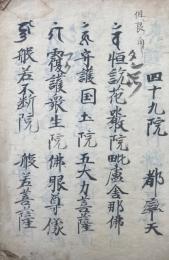 四十九院 都率天
恒説花嚴院 毗盧舎那佛
守護国土院 五大力菩薩
覆護衆生院 佛眼尊像
般若不断院 般若菩薩